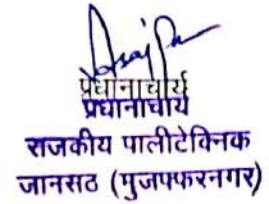 प्रधानाचार्य
प्रधानाचार्य
राजकीय पालीटेक्निक
जानसठ (मुजफ्फरनगर)